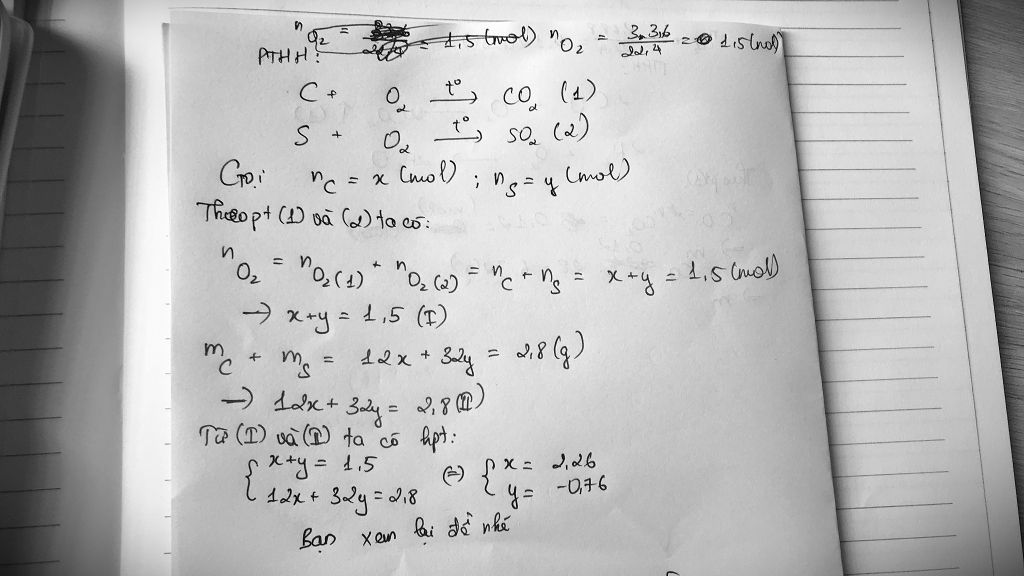 n O₂ = = 1,5 (mol) n O₂ = 3.3,36 / 22,4 = 1,5 (mol)
PTHH:
C + O₂ t°→ CO₂ (1)
S + O₂ t°→ SO₂ (2)
Gọi n_C = x (mol) ; n_S = y (mol)
Theo pt (1) và (2) ta có:
n_O₂ = n_O₂(1) + n_O₂(2) = n_C + n_S = x+y = 1,5 (mol)
→ x+y = 1,5 (I)
m_C + m_S = 12x + 32y = 2,8 (g)
→ 12x + 32y = 2,8 (II)
Từ (I) và (II) ta có hpt:
{ x+y = 1,5 (=) { x = 2,26
12x + 32y = 2,8 y = -0,76
Bạn xem lại đề nhé